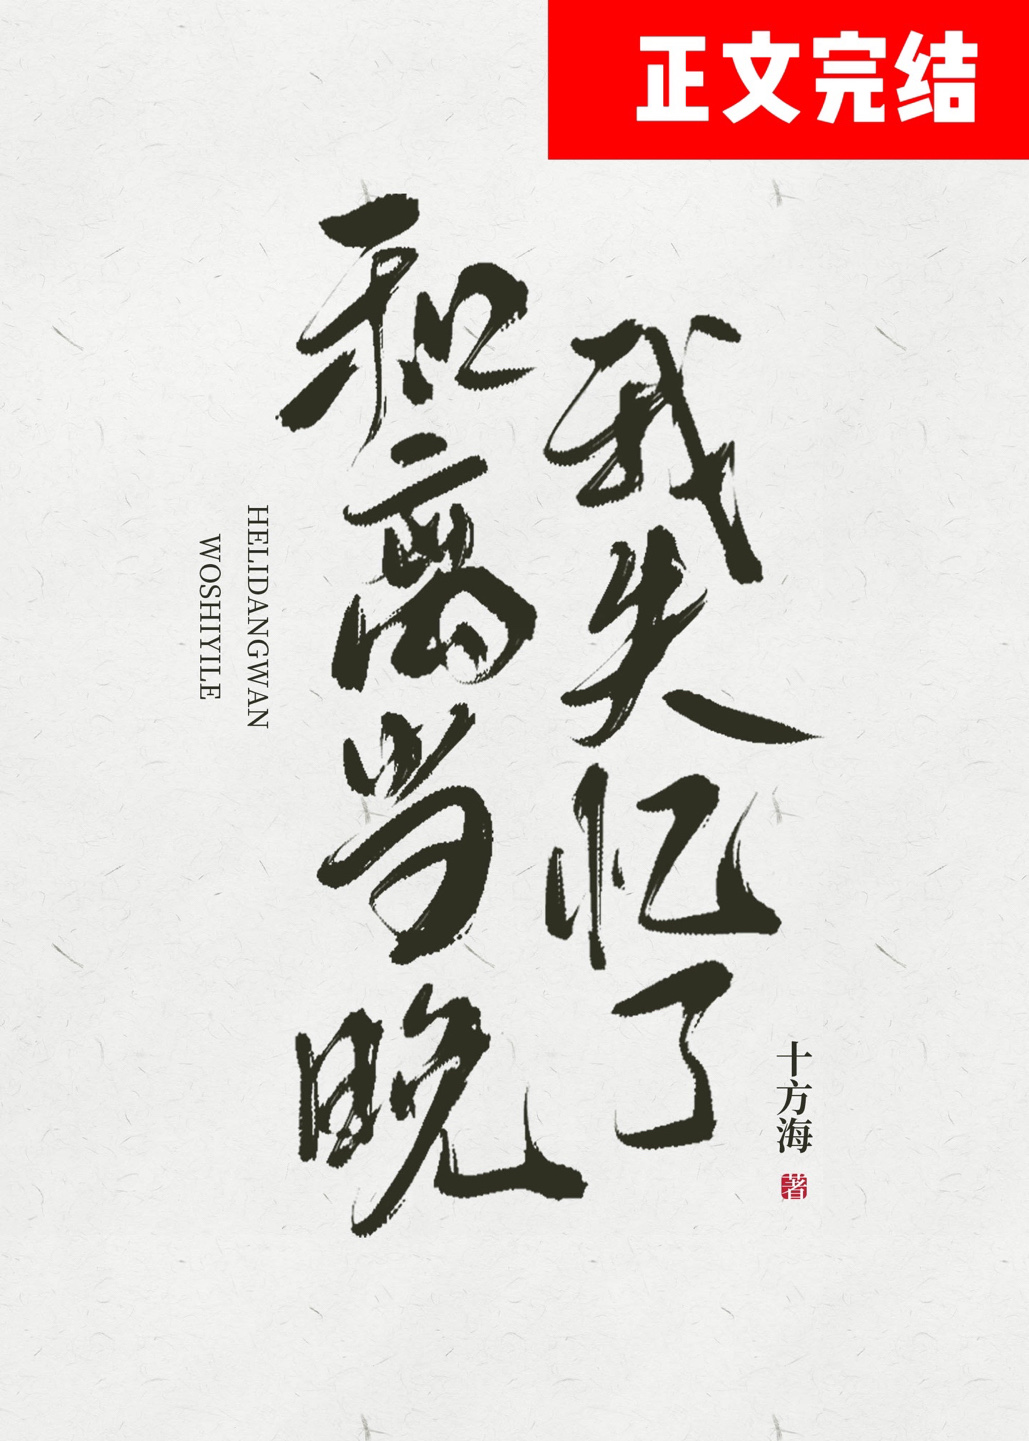 正文完结
和离当晚
我失忆了
HELIDANGWAN
WOSHIYILE
十方海
著